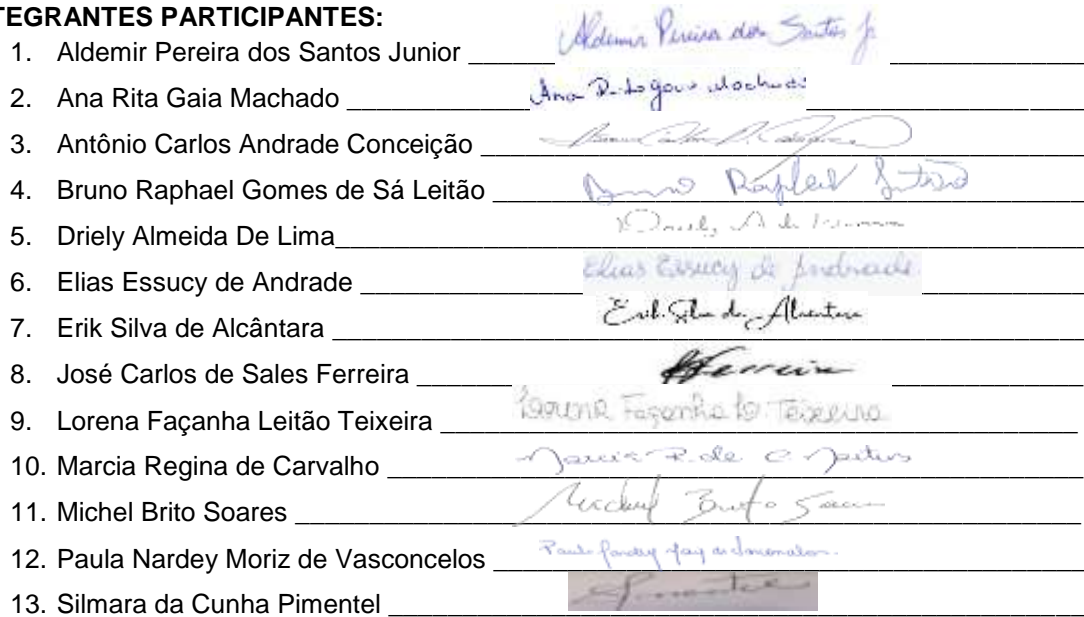 TEGRANTES PARTICIPANTES:
1. Aldemir Pereira dos Santos Junior ______ Aldemir Pereira dos Santos Jr _____________
2. Ana Rita Gaia Machado _____________ Ana Rita Gaia Machado ____________________
3. Antônio Carlos Andrade Conceição __________________________________________
4. Bruno Raphael Gomes de Sá Leitão Bruno Raphael Leitão
5. Driely Almeida De Lima Driely A. de
6. Elias Essucy de Andrade Elias Essucy de Andrade
7. Erik Silva de Alcântara Erik Silva de Alcantara
8. José Carlos de Sales Ferreira _______ Ferreira _____________
9. Lorena Façanha Leitão Teixeira Lorena Façanha L. Teixeira
10. Marcia Regina de Carvalho Marcia R. de C.
11. Michel Brito Soares Michel Brito Soares
12. Paula Nardey Moriz de Vasconcelos Paula
13. Silmara da Cunha Pimentel Pimentel